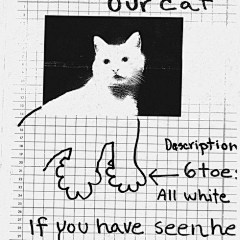 our cat
Description
6 toes
All white
If you have seen he